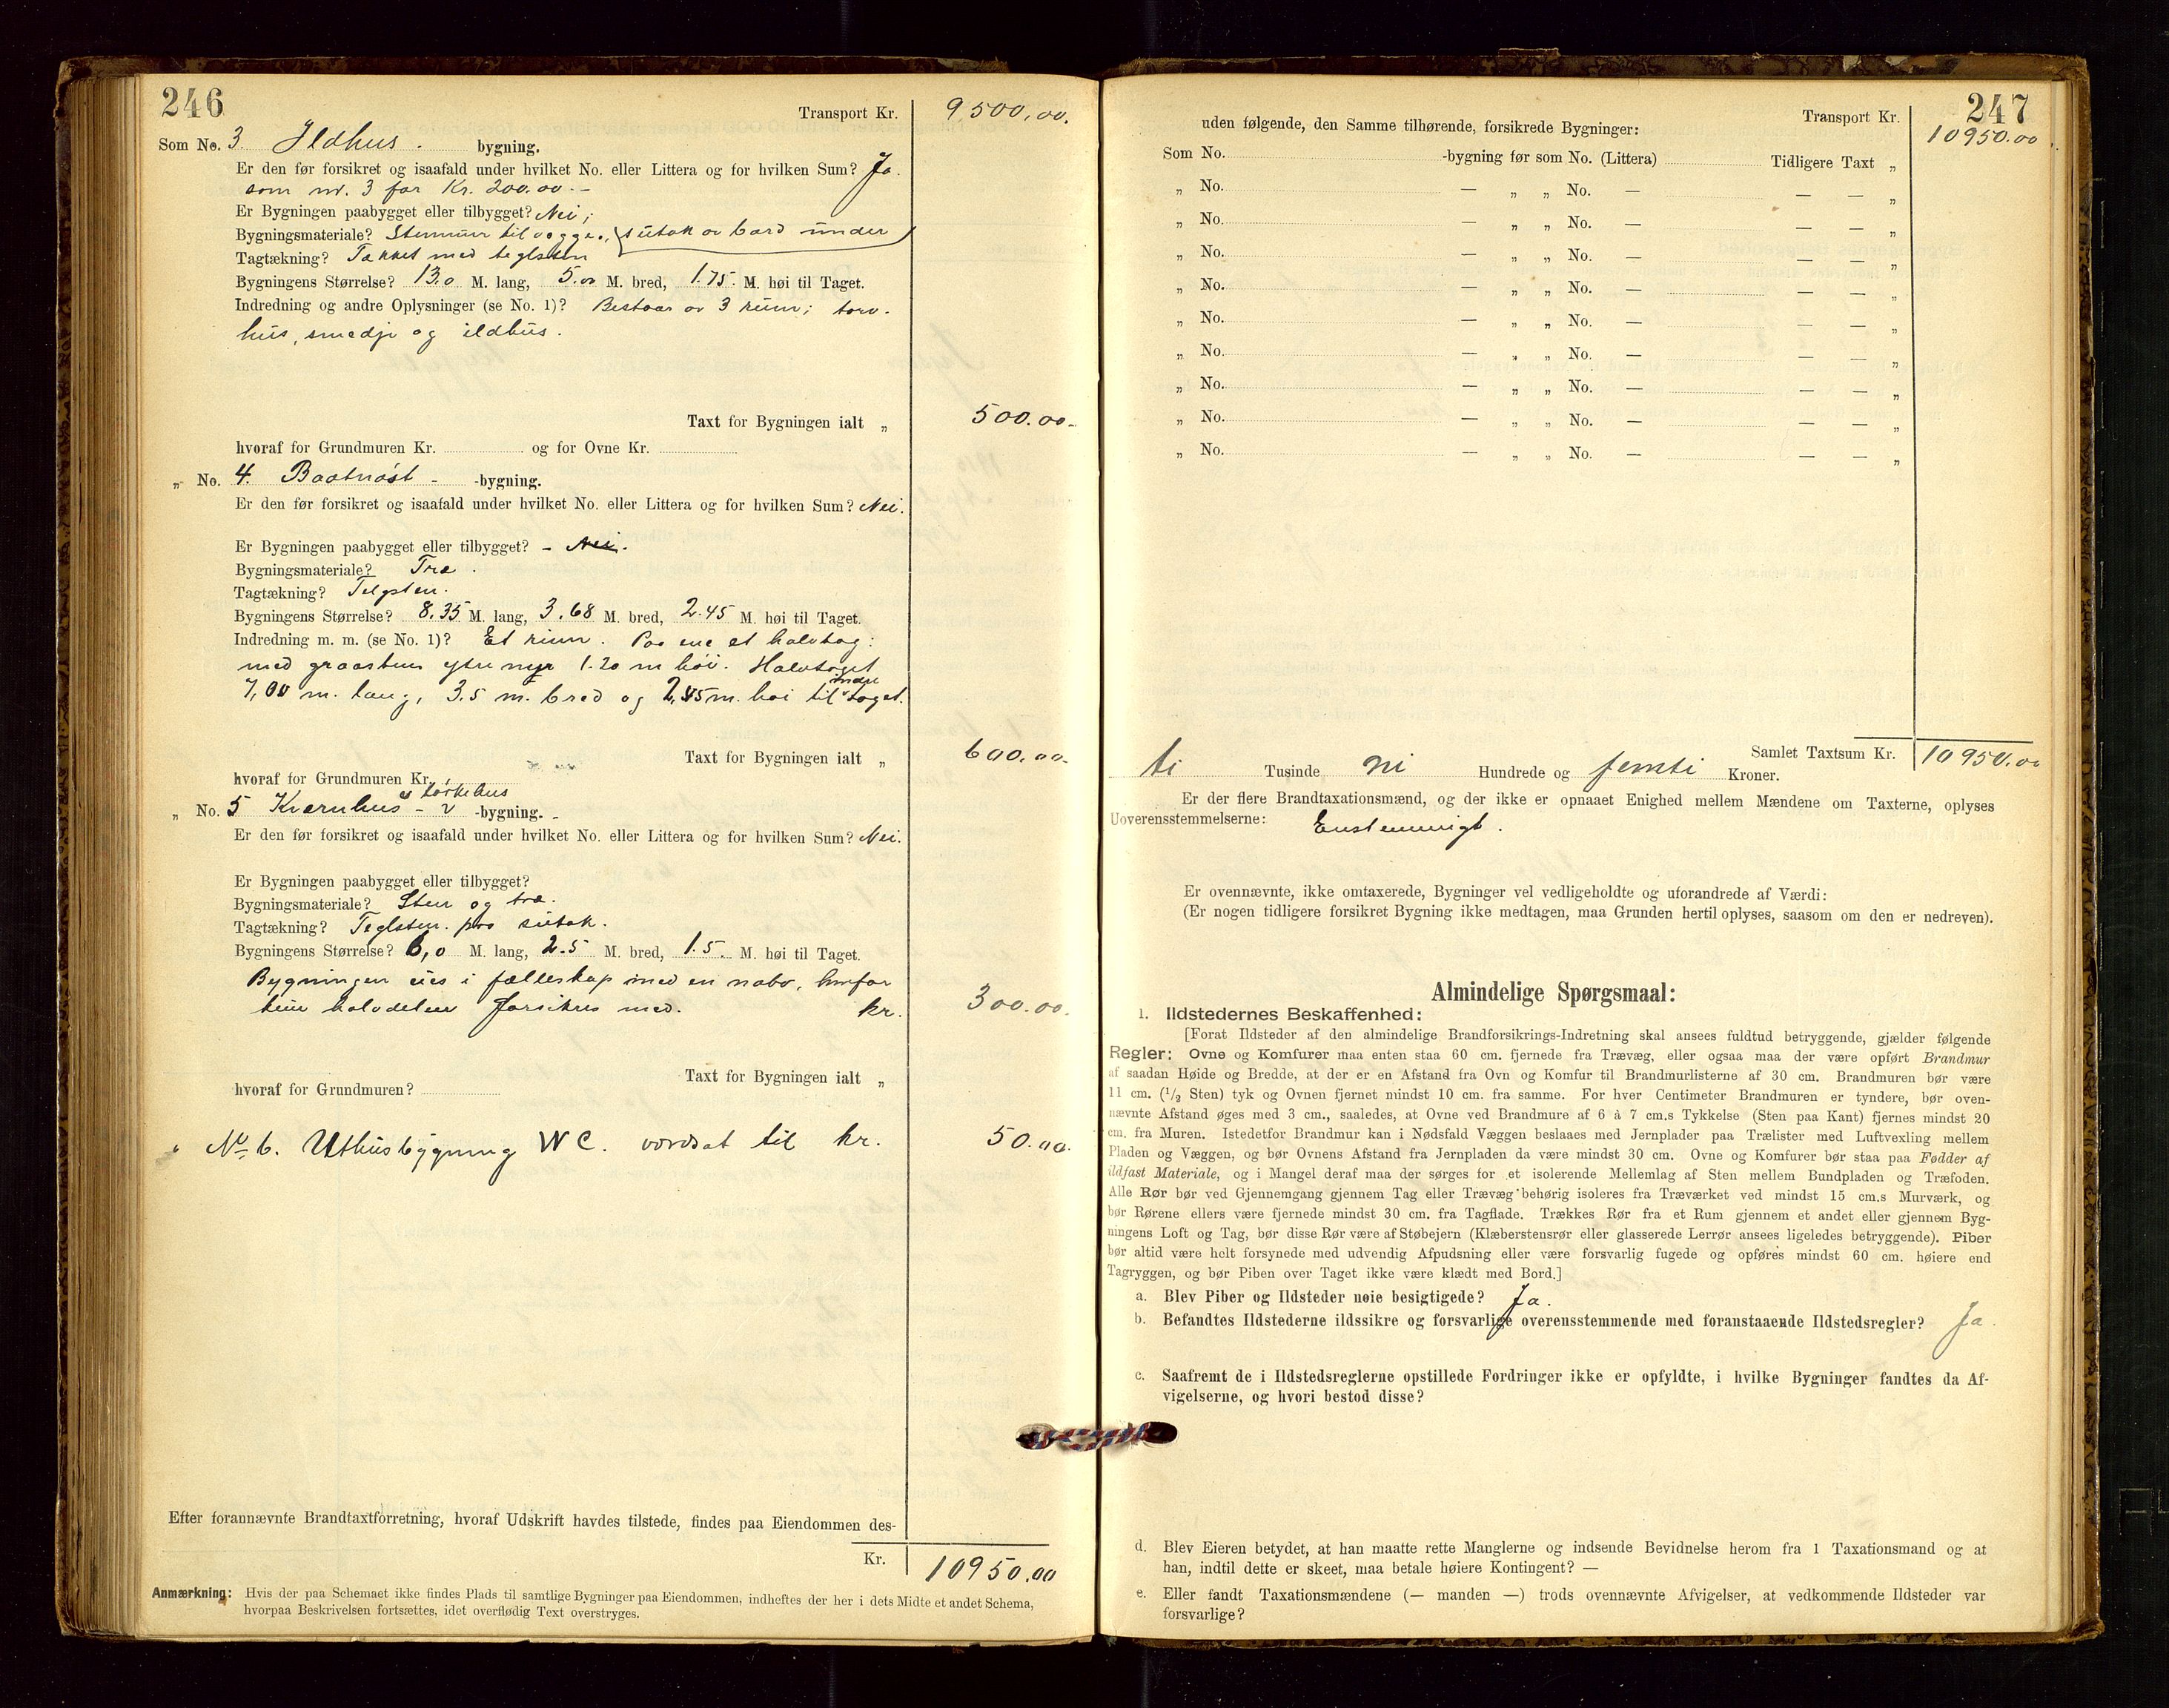 246
Transport Kr. 9500,00.
Som No. 3. Ildhus. bygning.
Er den før forsikret og isaafald under hvilket No. eller Littera og for hvilken Sum? Ja.
som nr. 3 for Kr. 200.00.-
Er Bygningen paabygget eller tilbygget? Nei;
Bygningsmateriale? Stenmur til vægge, sutak av bord under
Tagtækning? Tækket med teglsten
Bygningens Størrelse? 13.0 M. lang, 5.00 M. bred, 1.75. M. høi til Taget.
Indredning og andre Oplysninger (se No. 1)? Bestaar av 3 rum; torv-
hus, smedje og ildhus.
Taxt for Bygningen ialt „ 500.00-
hvoraf for Grundmuren Kr. og for Ovne Kr.
„ No. 4. Baatnøst - -bygning.
Er den før forsikret og isaafald under hvilket No. eller Littera og for hvilken Sum? Nei.
Er Bygningen paabygget eller tilbygget? - Nei.
Bygningsmateriale? Træ.
Tagtækning? Telgsten.
Bygningens Størrelse? 8.35 M. lang, 3.68 M. bred, 2.45 M. høi til Taget.
Indredning m. m. (se No. 1)? Et rum. Paa ene et halvtag:
med graastens ytre 1.20 m høi. Halvtaget
7,00 m. lang, 3.5 m. bred og 2,45 m. høi til indre taget.
Taxt for Bygningen ialt „ 600.00-
hvoraf for Grundmuren Kr.
„ No. 5 Kværnhus - & tørkehus -bygning. -
Er den før forsikret og isaafald under hvilket No. eller Littera og for hvilken Sum? Nei.
Er Bygningen paabygget eller tilbygget?
Bygningsmateriale? Sten og træ.
Tagtækning? Teglsten. paa sutak.
Bygningens Størrelse? 6,0 M. lang, 2.5 M. bred, 1.5. M. høi til Taget.
Bygningen eies i fælleskap med en nabo, hvorfor
kun halvdelen forsikres med. kr. 300.00.
Taxt for Bygningen ialt „
hvoraf for Grundmuren?
„ No 6. Uthusbygning WC. værdsat til kr. 50.00.
Efter forannævnte Brandtaxtforretning, hvoraf Udskrift havdes tilstede, findes paa Eiendommen des-
Kr. 10950.00
Anmærkning: Hvis der paa Schemaet ikke findes Plads til samtlige Bygninger paa Eiendommen, indheftes der her i dets Midte et andet Schema,
hvorpaa Beskrivelsen fortsættes, idet overflødig Text overstryges.
247
Transport Kr. 10950.00
uden følgende, den Samme tilhørende, forsikrede Bygninger:
Som No. -bygning før som No. (Littera) Tidligere Taxt „
„ No. — „ „ No. — — — „
„ No. — „ „ No. — — — „
„ No. — „ „ No. — — — „
„ No. — „ „ No. — — — „
„ No. — „ „ No. — — — „
„ No. — „ „ No. — — — „
„ No. — „ „ No. — — — „
„ No. — „ „ No. — — — „
„ No. — „ „ No. — — — „
Samlet Taxtsum Kr. 10950.00
ti Tusinde ni Hundrede og femti Kroner.
Er der flere Brandtaxationsmænd, og der ikke er opnaaet Enighed mellem Mændene om Taxterne, oplyses
Uoverensstemmelserne: Enstemmigt.
Er ovennævnte, ikke omtaxerede, Bygninger vel vedligeholdte og uforandrede af Værdi:
(Er nogen tidligere forsikret Bygning ikke medtagen, maa Grunden hertil oplyses, saasom om den er nedreven).
Almindelige Spørgsmaal:
1. Ildstedernes Beskaffenhed:
[Forat Ildsteder af den almindelige Brandforsikrings-Indretning skal ansees fuldtud betryggende, gjælder følgende
Regler: Ovne og Komfurer maa enten staa 60 cm. fjernede fra Trævæg, eller ogsaa maa der være opført Brandmur
af saadan Høide og Bredde, at der er en Afstand fra Ovn og Komfur til Brandmurlisterne af 30 cm. Brandmuren bør være
11 cm. (1/2 Sten) tyk og Ovnen fjernet mindst 10 cm. fra samme. For hver Centimeter Brandmuren er tyndere, bør oven-
nævnte Afstand øges med 3 cm., saaledes, at Ovne ved Brandmure af 6 à 7 cm.s Tykkelse (Sten paa Kant) fjernes mindst 20
cm. fra Muren. Istedetfor Brandmur kan i Nødsfald Væggen beslaaes med Jernplader paa Trælister med Luftvexling mellem
Pladen og Væggen, og bør Ovnens Afstand fra Jernpladen da være mindst 30 cm. Ovne og Komfurer bør staa paa Fødder af
ildfast Materiale, og i Mangel deraf maa der sørges for et isolerende Mellemlag af Sten mellem Bundpladen og Træfoden.
Alle Rør bør ved Gjennemgang gjennem Tag eller Trævæg behørig isoleres fra Træværket ved mindst 15 cm.s Murværk, og
bør Rørene ellers være fjernede mindst 30 cm. fra Tagflade. Trækkes Rør fra et Rum gjennem et andet eller gjennem Byg-
ningens Loft og Tag, bør disse Rør være af Støbejern (Klæberstensrør eller glasserede Lerrør ansees ligeledes betryggende). Piber
bør altid være helt forsynede med udvendig Afpudsning eller være forsvarlig fugede og opføres mindst 60 cm. høiere end
Tagryggen, og bør Piben over Taget ikke være klædt med Bord.]
a. Blev Piber og Ildsteder nøie besigtigede? Ja.
b. Befandtes Ildstederne ildssikre og forsvarlige overensstemmende med foranstaaende Ildstedsregler? Ja.
c. Saafremt de i Ildstedsreglerne opstillede Fordringer ikke er opfyldte, i hvilke Bygninger fandtes da Af-
vigelserne, og hvori bestod disse?
d. Blev Eieren betydet, at han maatte rette Manglerne og indsende Bevidnelse herom fra 1 Taxationsmand og at
han, indtil dette er skeet, maa betale høiere Kontingent? —
e. Eller fandt Taxationsmændene (— manden —) trods ovennævnte Afvigelser, at vedkommende Ildsteder var
forsvarlige?